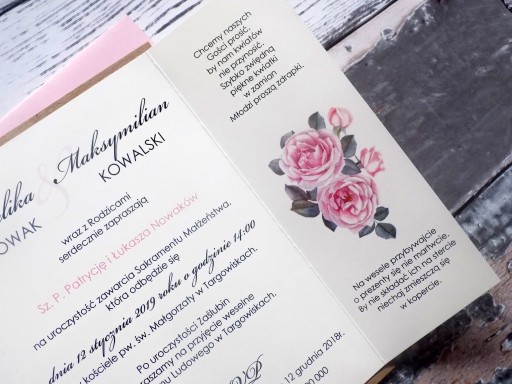 & Maksymilian
KOWALSKI
wraz z Rodzicami
serdecznie zapraszają
Sz. P. Patrycję i Łukasza Nowaków
na uroczystość zawarcia Sakramentu Małżeństwa,
która odbędzie się
dnia 12 stycznia 2019 roku o godzinie 14:00
kościele pw. św. Małgorzaty w Targowiskach.
Po uroczystości Zaślubin
na przyjęcie weselne
Ludowego w Targowiskach.
12 grudnia 2018r.
Chcemy naszych
Gości prosić,
by nam kwiatów
nie przynosić.
Szybko zwiędną
piękne kwiatki
w zamian
Młodzi proszą zdrapki.
Na wesele przybywajcie
o prezenty się nie martwcie.
By nie składać ich na stercie
niechaj zmieszczą się
w kopercie.